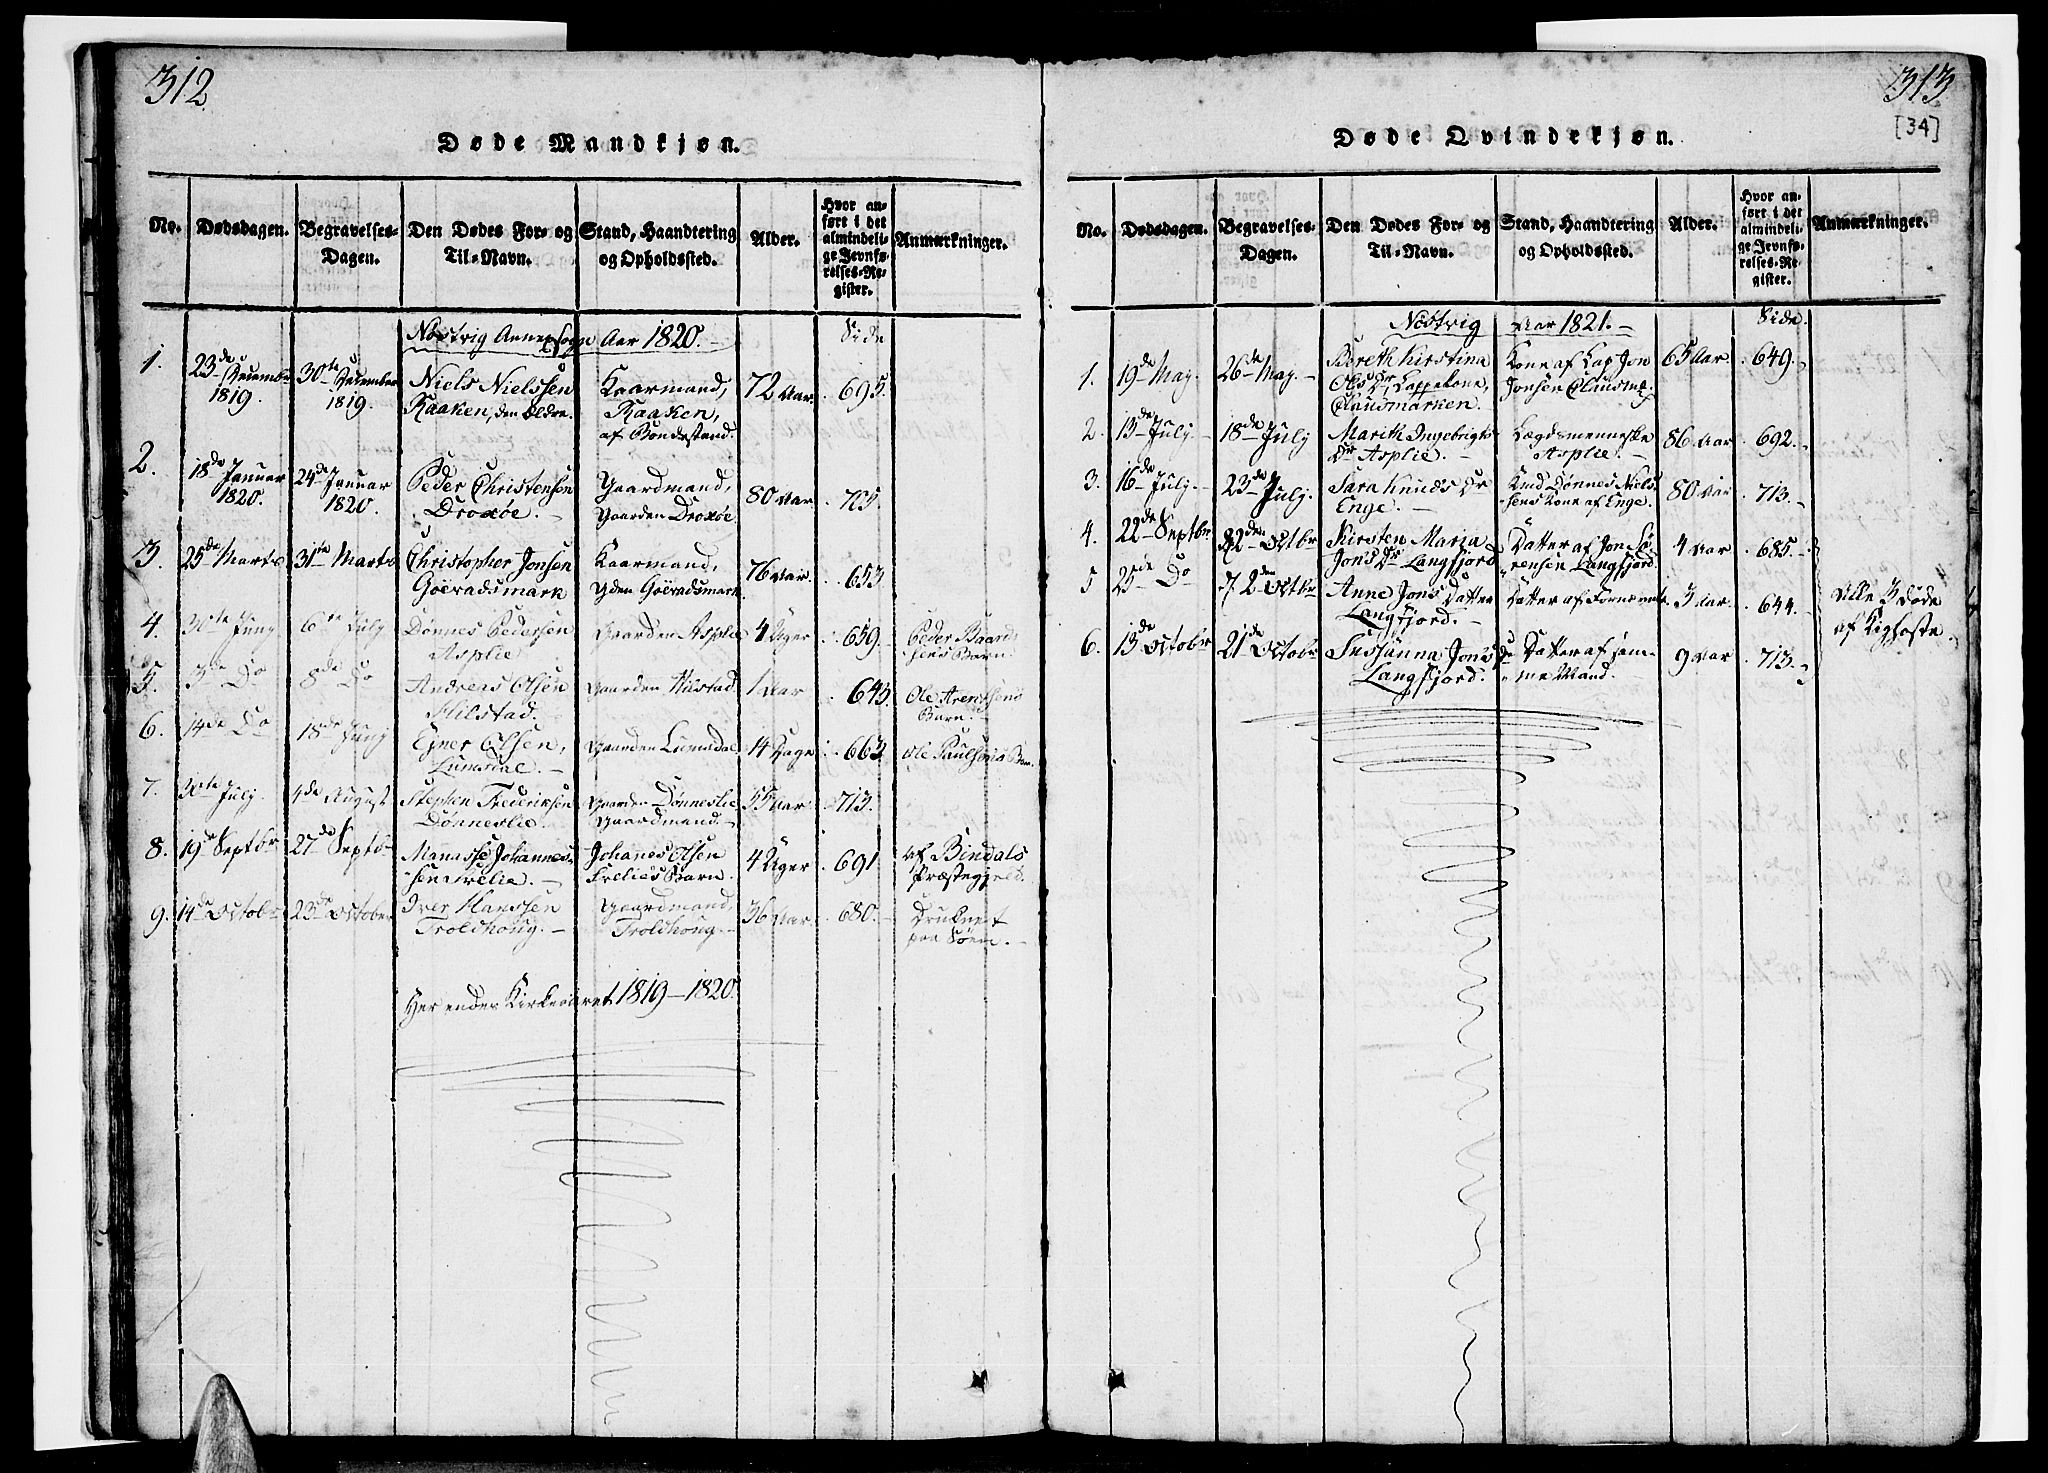 312.
Døde Mandkjøn.
No.
Dødsdagen.
Begravelses-
Dagen.
Den Dødes For- og
Til-Navn.
Stand, Haandtering
og Opholdssted.
Alder.
Hvor an-
ført i det
almindeli-
ge Jevnfø-
relses-Re-
gister.
Anmærkninger.
Nøstvig Annexsogn Aar 1820. Side
1. 23de December 1819. 30te December 1819. Niels Nielssen Raaken, den Ældre. Kaarmand, Raaken, af Bondestand. 72 Aar. 695.
2. 18de Januar 1820. 24de Januar 1820. Peder Christensen Droxøe. Gaardmand, Gaarden Droxøe 80 Aar 705.
3. 25de Marts 31te Marts Christopher Jonsen Göeradsmark Kaarmand, Gden Göeradsmark. 76 Aar. 653
4. 30te Juny 6te July Dønnes Pedersen Asplie Gaarden Asplie 4 Uger 659. Peder Baardsens Barn.
5. 3de Do 8de Do Andreas Olsen Hilstad. Gaarden Hilstad. 1 Aar 643. Ole Arentsens Barn.
6. 14de Do 18de Juny Ejner Olsen, Lumsdal. Gaarden Lumsdal 14 Dage 662 Ole Paulsens Barn.
7. 30te July. 4de August Stephen Frederiksen Dønneslie. Gaarden Dønneslie Gaardmand. 55 Aar 713.
8. 19de Septbr 27de Septb Manasse Johannessen Frelie. Johanes Olsen Frelies Barn. 4 Uger 691 Af Bindals Præstegjeld.
9. 14de Octobr 23de October Iver Hanssen Troldhoug. Gaardmand, Troldhoug. 36 Aar. 680. Druknet paa Søen.
Her ender Kirkeaaret 1819-1820.
313
[34]
Døde Qvindekjøn.
No.
Dødsdagen.
Begravelses-
Dagen.
Den Dødes For- og
Til-Navn.
Stand, Haandtering
og Opholdssted.
Alder.
Hvor an-
ført i det
almindeli-
ge Jevnfø-
relses-Re-
gister.
Anmærkninger.
Nøstvig Aar 1821. Side.
1. 19de May. 26de May. Bereth Kirstina Olsdr, Lappekone, Clausmarken. Kone af Lap Jon Jonsen Clausmk. 65 Aar. 649.
2. 13de July. 18de July Marith Ingebrigtsdr Asplie. Lægdsmenneske Asplie. 86 Aar 692.
3. 16de July. 23de July. Sara Knuds dr Enge. Knud Dønnes Nielssens Kone af Enge. 80 Aar 713.
4. 22de Septbr 2den Octbr Kirsten Maria Jonsdr Langfjord Datter af Jon Sörensen Langfjord. 4 Aar 685.
5 25de Do 2den Octbr Anne Jons Datter Langfjord. Datter af Fornævnte 3 Aar. 644. Alle 3 døde af Kighoste
6. 13de Octobr 21de Octobr Sussanna Jons dr Langfjord. Datter af samme Mand. 9 Aar 713.